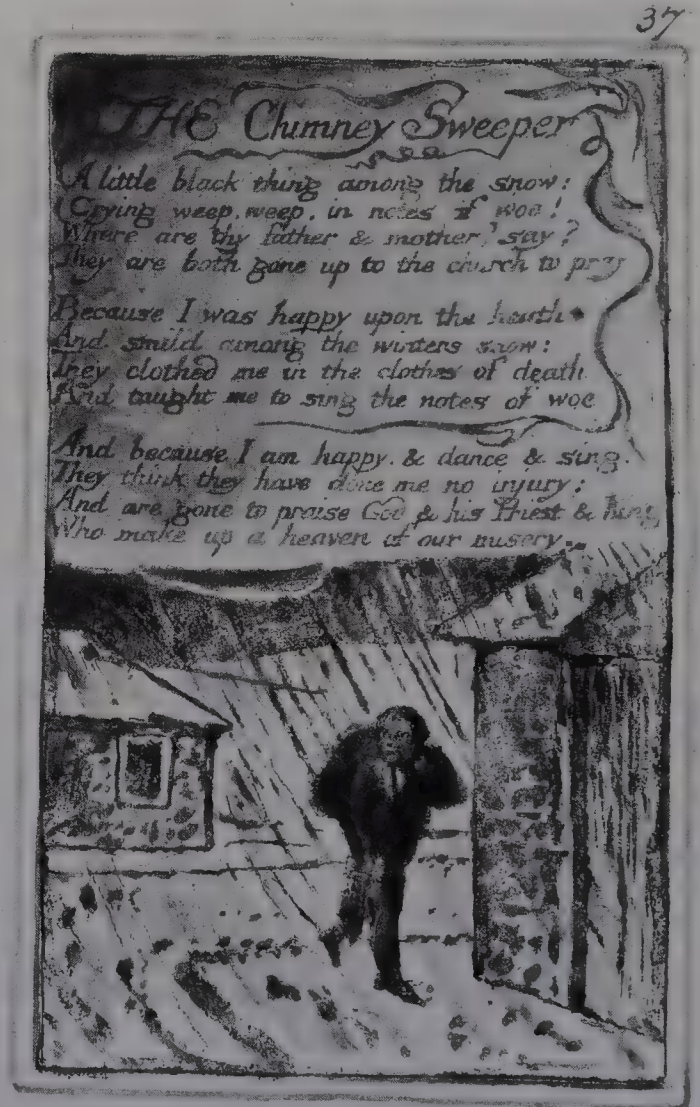 37
THE Chimney Sweeper
A little black thing among the snow:
Crying weep, weep, in notes of woe!
Where are thy father & mother? say?
They are both gone up to the church to pray
Because I was happy upon the heath
And smil'd among the winters snow:
They clothed me in the clothes of death
And taught me to sing the notes of woe
And because I am happy. & dance & sing.
They think they have done me no injury:
And are gone to praise God & his Priest & King
Who make up a heaven of our misery.